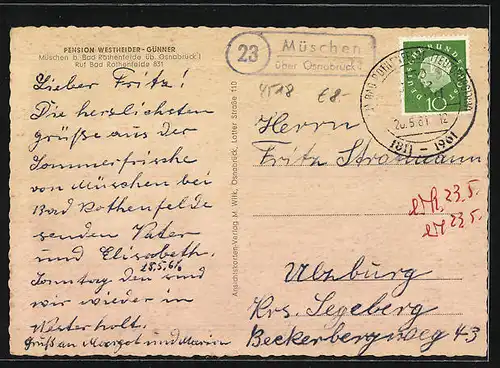 PENSION WESTHEIDER-GUNNER
Müschen b. Bad Rothenfelde üb. Osnabrück
Ruf Bad Rothenfelde 831
Lieber Fritz!
Die herzlichsten
grüße aus der
Sommerfrische
von Müschen bei
Bad Rothenfelde
senden Vater
und Elisabeth.
Sonntag den sind
wir wieder in
Westerholt.
Gruß an Margot und Marion
Ansichtskarten-Verlag M. Wilk, Osnabrück, Lotter Straße 110
23
Müschen
über Osnabrück 2
4518 £8-
DEUTSCHE BUNDESPOST
10
1811 - 1961
Herrn
Fritz Stratmann
23.5.
23.5.
Ulzburg
Krs. Segeberg
Beckerbergweg 43